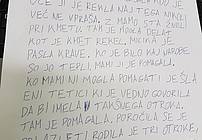 OČE JI JE REKLA NAJ TEGA NIKOLI
VEČ NE VPRAŠA. Z MAMO STA ŽIVELI
PRI KMETU, TAM JE MORALA DELAT
KOT JE KMET REKEL. MICIKA JE
PASLA KRAVE. KO JE BILO KAJ NAROBE
SO JO TEPLI. MAMI JI JE POMAGALA.
KO MAMI NI MOGLA POMAGATI JE ŠLA
ENI TETICI KI JE VEDNO GOVORILA
DA BI IMELA TAKŠNEGA OTROKA.
TAM JE POMAGALA. POROČILA SE JE
LET I RODILA JE TRI OTROKE,